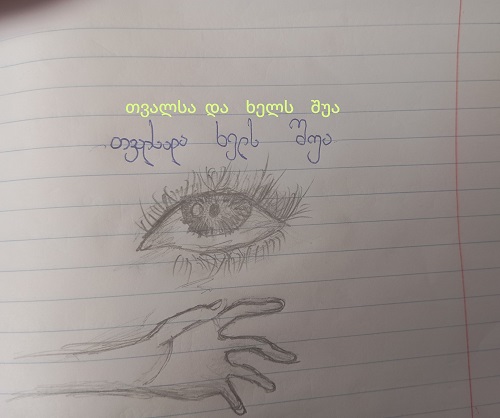 თვალსა და ხელს შუა
თვალსადა ხელს შუა